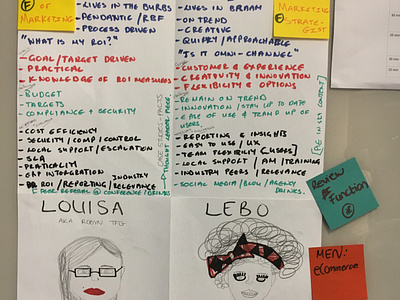 (F) OF MARKETING
- LIVES IN THE BURBS
- PENDANTIC / RBF
- PROCESS DRIVEN
"WHAT IS MY ROI?"
- GOAL / TARGET DRIVEN
- PRACTICAL
- KNOWLEDGE OF ROI MEASURES
- BUDGET
- TARGETS
- COMPLIANCE + SECURITY
- COST EFFICIENCY
- SECURITY / COMP / CONTROL
- LOCAL SUPPORT / ESCALATION
- SLA
- PRATICALITY
- ERP INTERGRATION
- ROI / REPORTING / RELEVANCE
INDUSTRY
[PEER REFERAL @ CONFERENCE / DRINKS]
CASE STUDIES - FACTS
THOUGHT LEADER PIECES
LOUISA
AKA ROBYN
MARKETING STRATE-
(F) GIST
- LIVES IN BRAAM
- ON TREND
- CREATIVE
- QUIRKY / APPROACHABLE
"IS IT OMNI-CHANNEL"
- CUSTOMER & EXPERIENCE
- CREATIVITY & INNOVATION
- FLEXIBILITY & OPTIONS
- REMAIN ON TREND
- INNOVATION / STAY UP TO DATE
- EASE OF USE & TEAM UP OF USERS.
- REPORTING & INSIGHTS
- EASY TO USE / UX
- TEAM FLEXIBILITY [USERS]
- LOCAL SUPPORT / AM / TRAINING
- INDUSTRY PEERS / RELEVANCE
- SOCIAL MEDIA / BLOG / AGENCY DRINKS.
LEBO
REVIEW
Function
MEN:
eCommerce